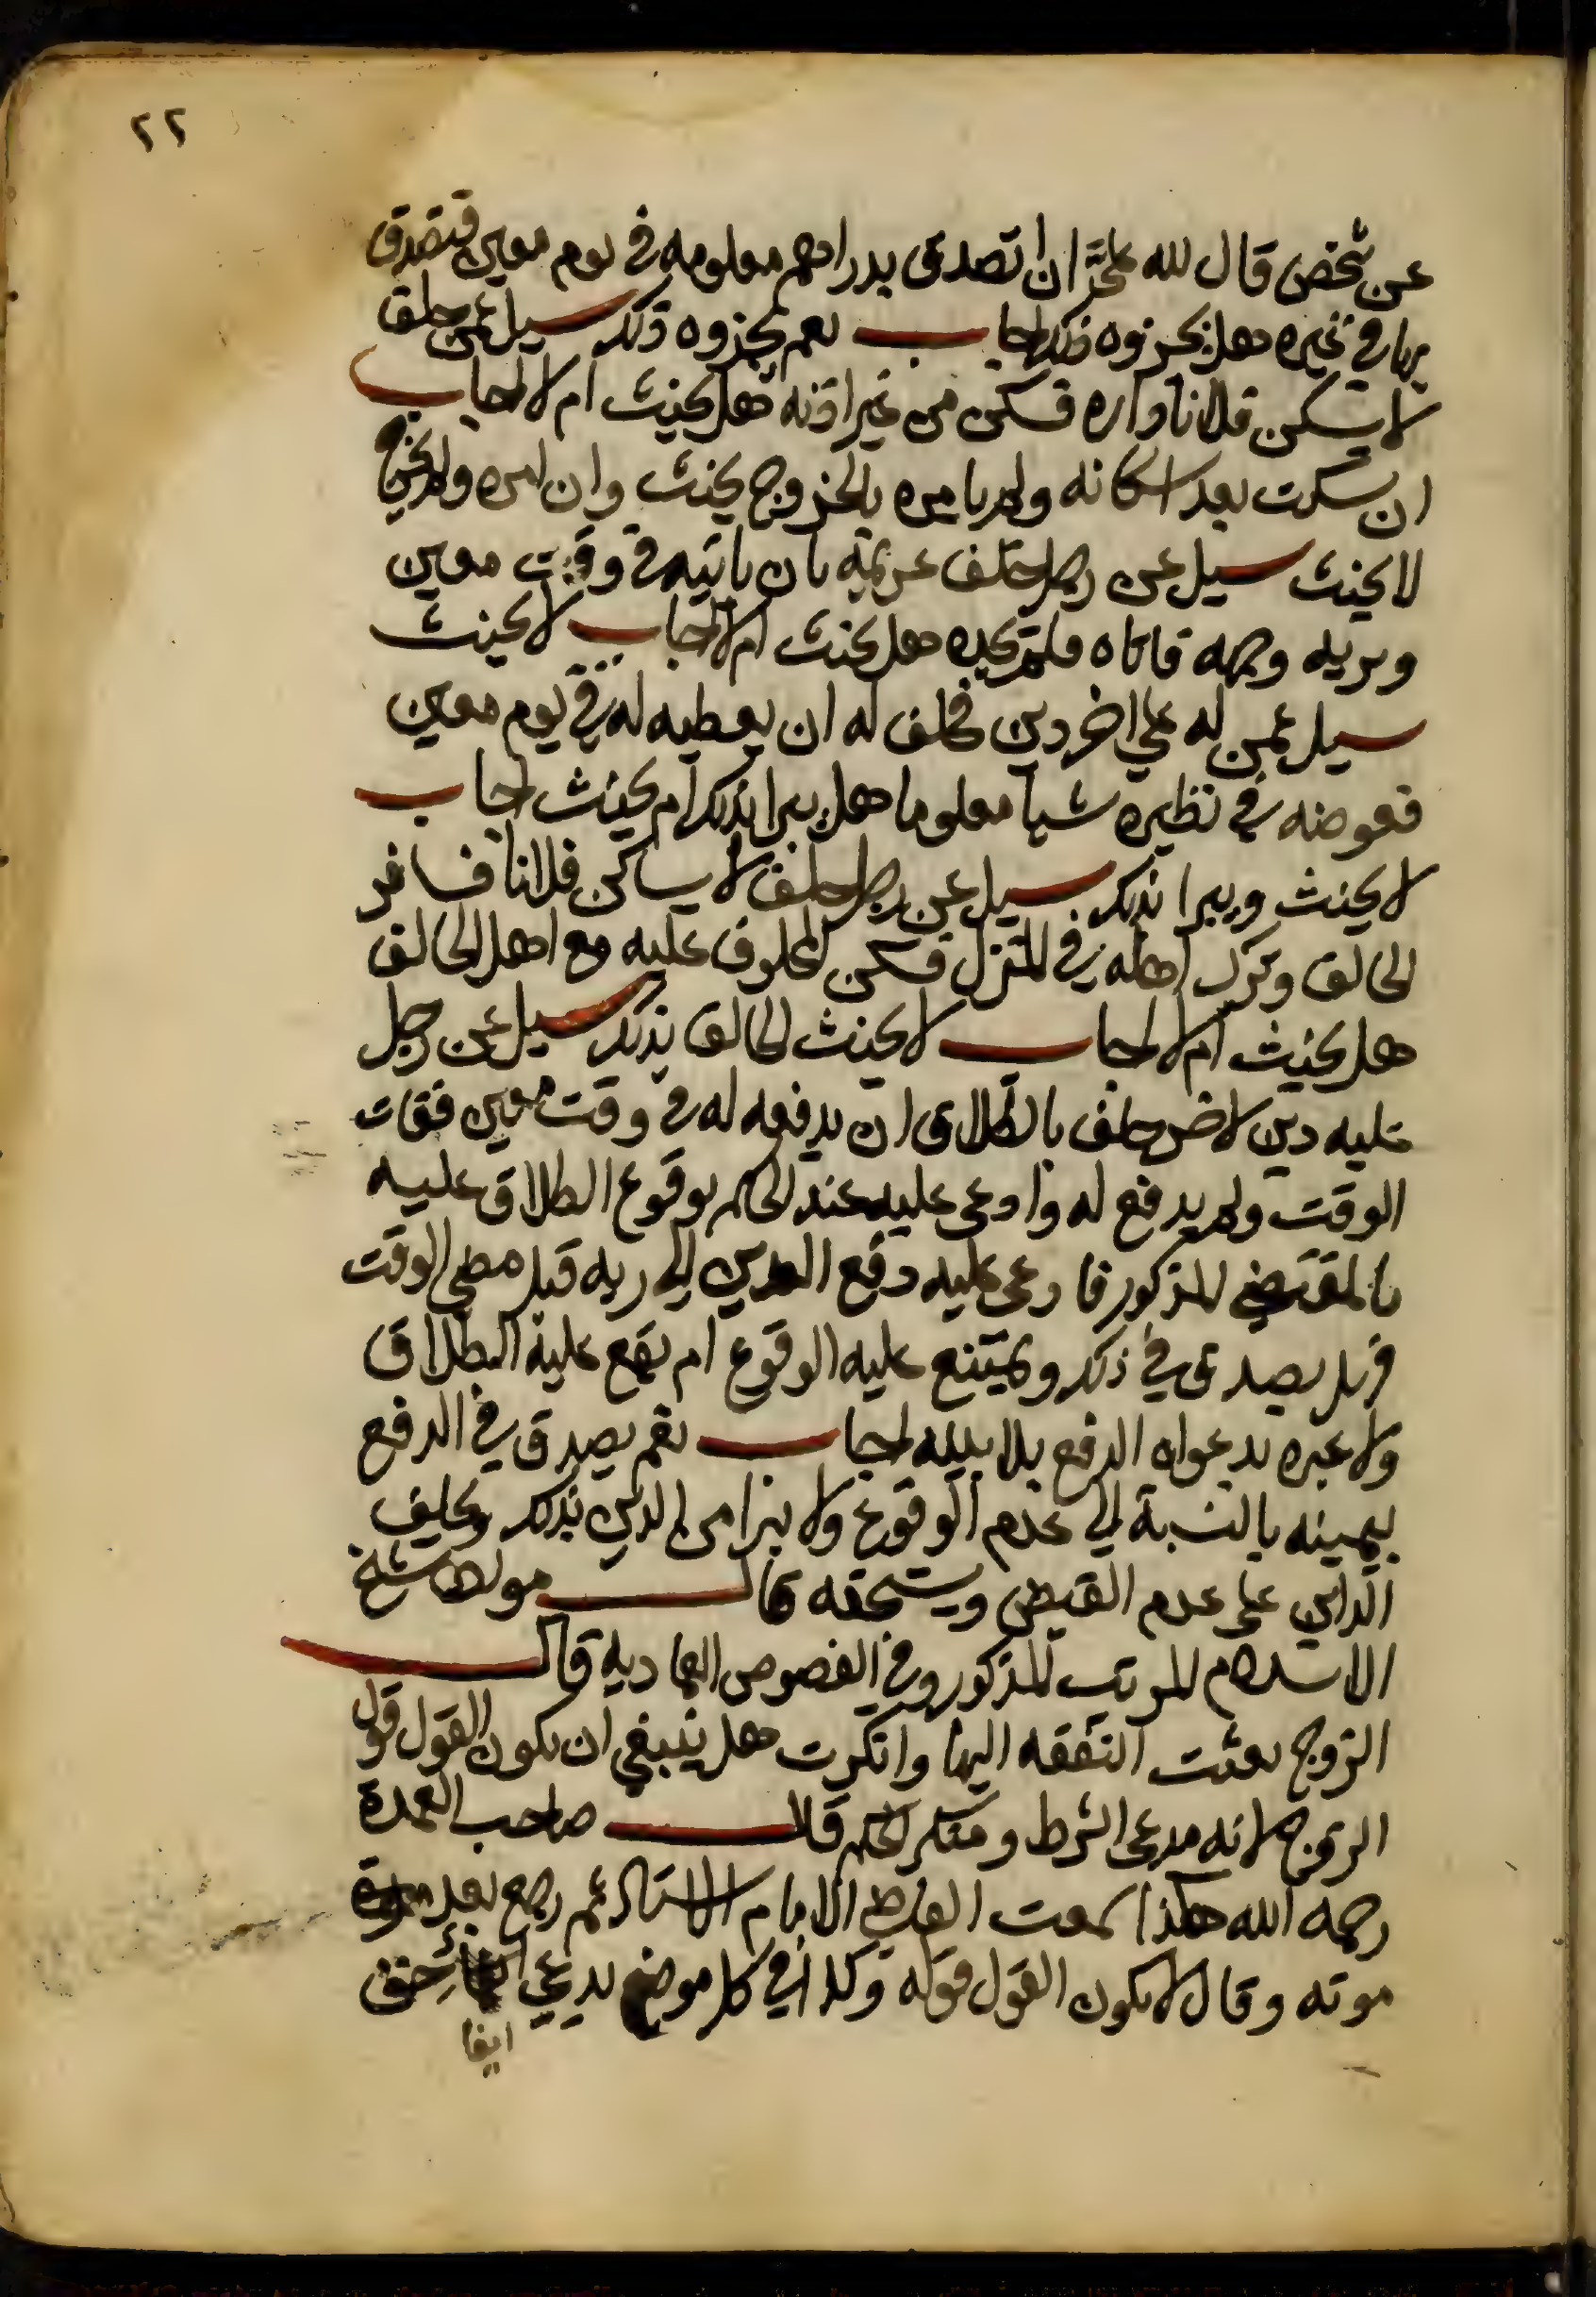 ٢٢
عن شخص قال لله علي ان اتصدق بدراهم معلومه في يوم معين فتصدق
بها في غيره هل يجزوه ذلك اجاب نعم يجزوه ذلك سيل عمن حلف
لا يسكن فلانا داره فسكن من غير اذنه هل يحنث ام لا اجاب
ان سكت بعد اسكانه ولم يامره بالخروج يحنث وان امره ولم يخرج
لا يحنث سيل عن رجل حلف غريمه بان ياتيه في وقت معين
ويريه وجهه فاتاه فلم يجده هل يحنث ام لا اجاب لا يحنث
سيل عمن له علي اخر دين فحلف له ان يعطيه له في يوم معين
فعوضه في نظيره شيا معلوما هل يبرا بذلك ام يحنث اجاب
لا يحنث ويبرا بذلك سيل عن رجل حلف لا يساكن فلانا فسافر
الحالف وترك اهله في المنزل فسكن المحلوف عليه مع اهل الحالف
هل يحنث ام لا اجاب لا يحنث الحالف بذلك سيل عن رجل
عليه دين لاخر حلف بالطلاق ان يدفعه له في وقت معين ففات
الوقت ولم يدفع له وادعى عليه عند الحاكم بوقوع الطلاق عليه
بالمقتضي المذكور فادعى عليه دفع الدين الي ربه قبل مضي الوقت
فهل يصدق في ذلك ويمتنع عليه الوقوع ام يقع عليه الطلاق
ولا عبره بدعواه الدفع بلا بينه اجاب نعم يصدق في الدفع
بيمينه بالنسبة الي عدم الوقوع ولا يبرا من الدين بذلك ويحلف
الداين على عدم القبض ويستحقه قال مولفها شيخ
الاسلام المرتب المذكور وفي الفصوص العماديه قال
الزوج بعثت النفقه اليها وانكرت هل ينبغي ان يكون القول قول
الزوج لانه مدعى الشرط ومنكر الحكم قال صاحب العمدة
رحمه الله هكذا سمعت القاضي الامام الاستاذ ثم رجع بعد مدة
موته وقال لا يكون القول قوله وكذا في كل موضع يدعي حق
ايفا